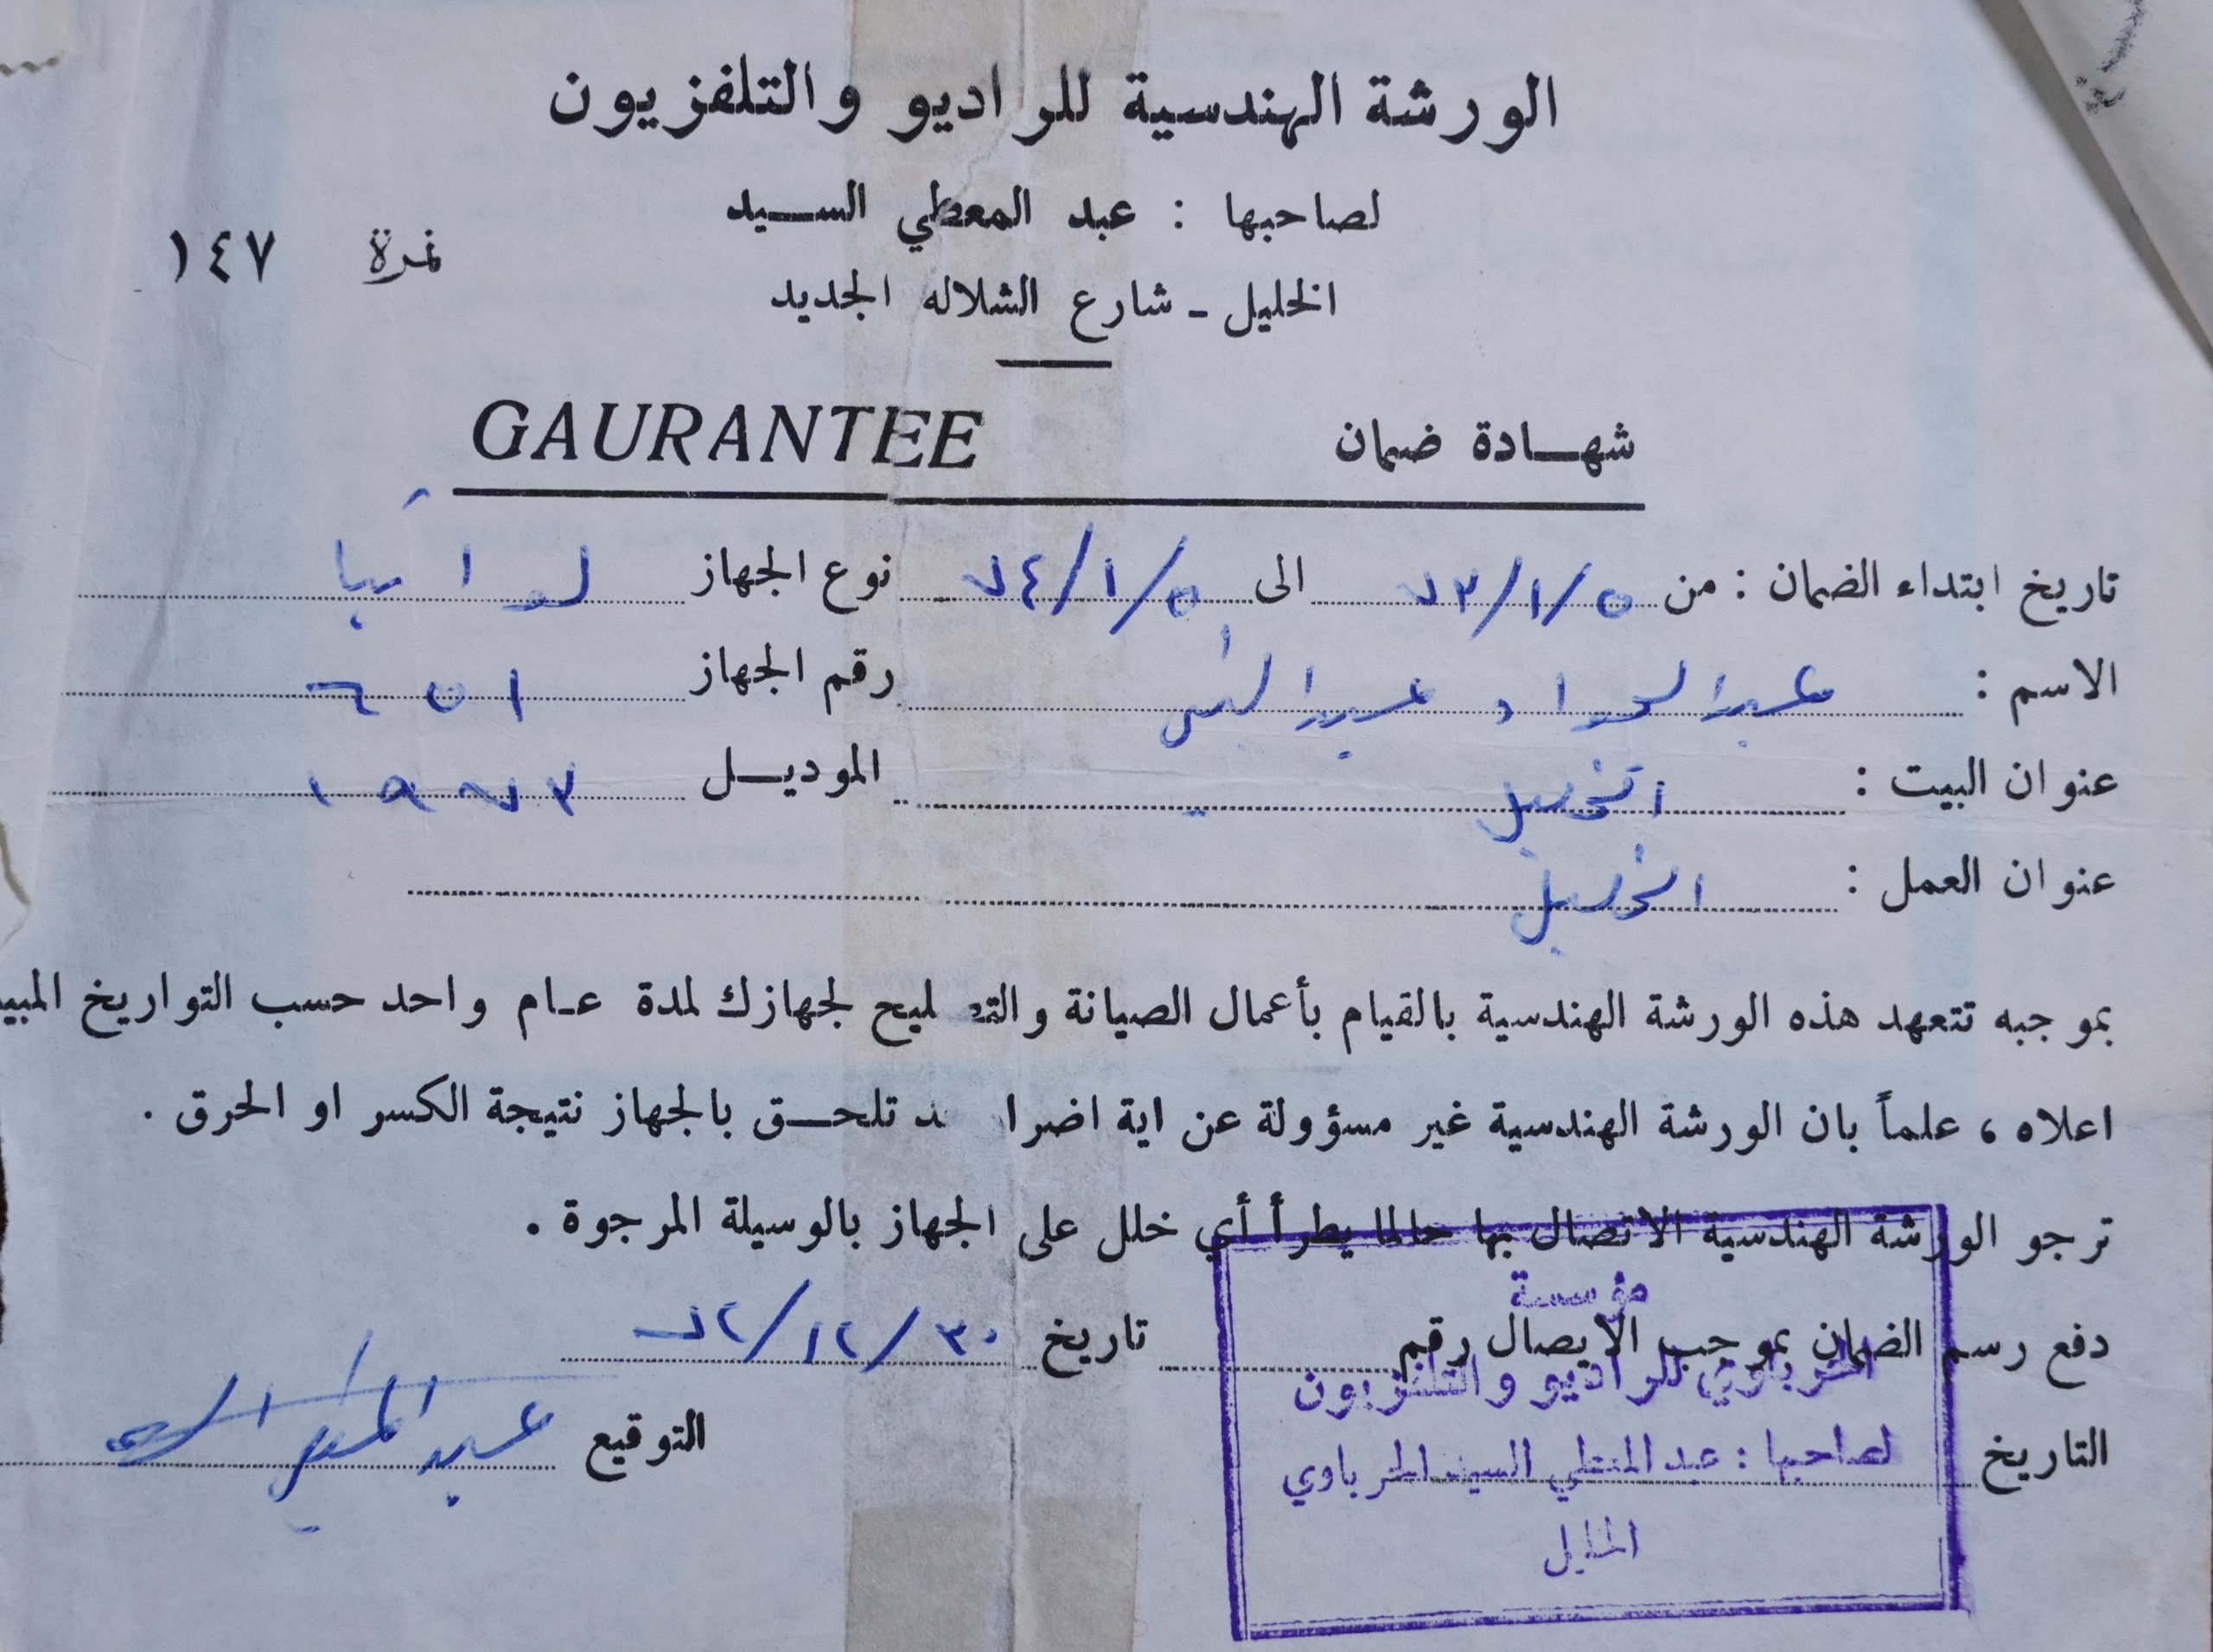 الورشة الهندسية للراديو والتلفزيون
لصاحبها : عبد المعطي السيد
نمرة ١٤٧
الخليل - شارع الشلاله الجديد
شهادة ضمان GAURANTEE
تاريخ ابتداء الضمان : من ٧٣/١/٥ الى ٧٤/١/٥ نوع الجهاز
الاسم : عبد الجواد عبد النبي رقم الجهاز ٦٥١
عنوان البيت : الخليل الموديل ١٩٧٣
عنوان العمل : الخليل
بموجبه تتعهد هذه الورشة الهندسية بالقيام بأعمال الصيانة والتصليح لجهازك لمدة عام واحد حسب التواريخ المبي
اعلاه ، علماً بان الورشة الهندسية غير مسؤولة عن اية اضرا تلحق بالجهاز نتيجة الكسر او الحرق .
ترجو الورشة الهندسية الاتصال بها حالما يطرأ أي خلل على الجهاز بالوسيلة المرجوة .
دفع رسم الضمان بموجب الايصال رقم تاريخ ٧٢/١٢/٣٠
التاريخ التوقيع
مؤسسة
الحرباوي للراديو والتلفزيون
لصاحبها : عبد المعطي السيد الحرباوي
الخليل